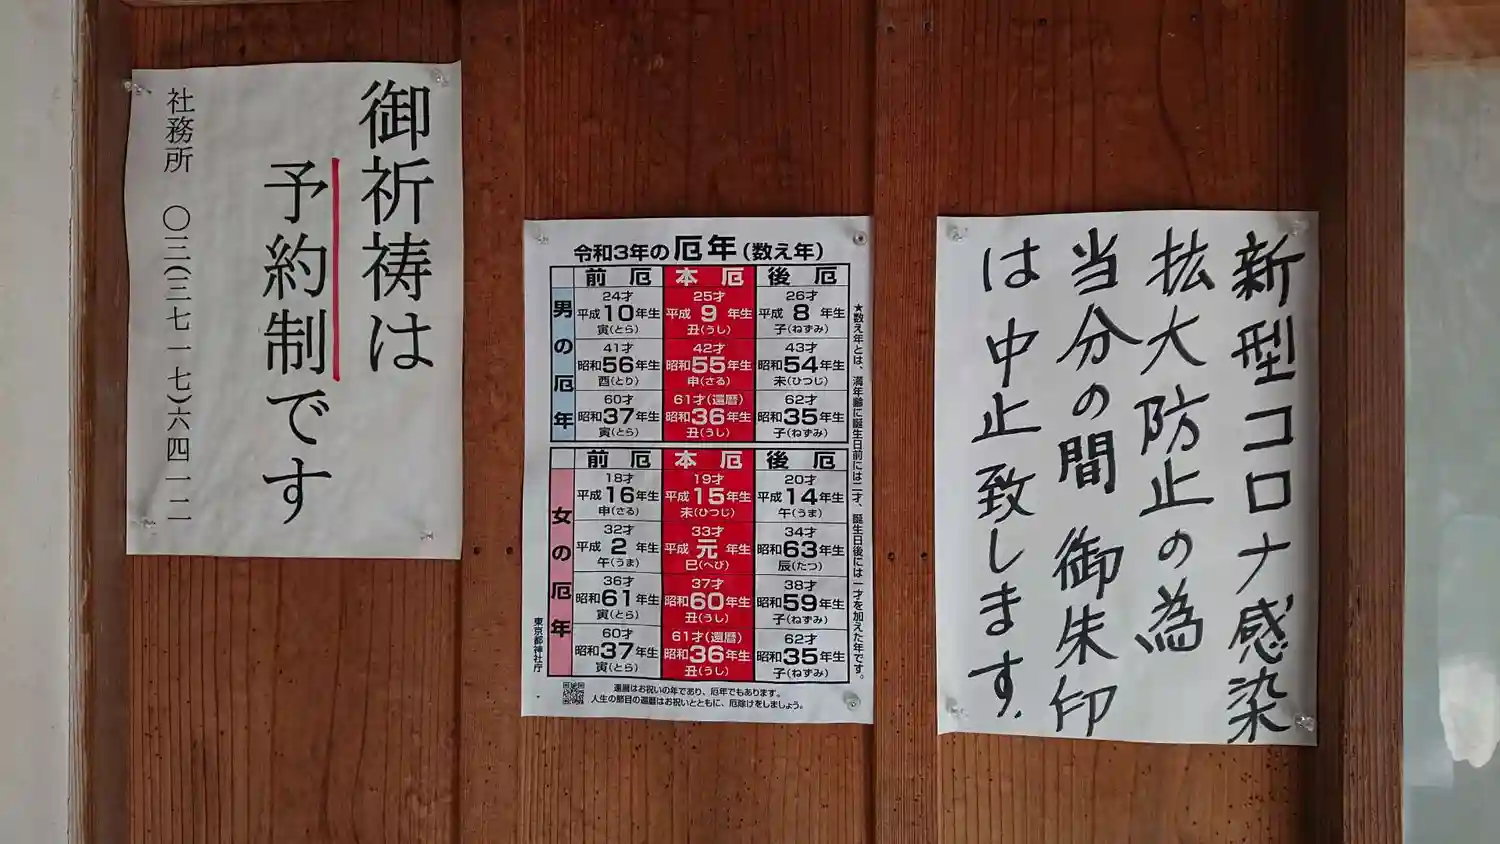 御祈祷は
予約制です
社務所 〇三(三七一七)六四一二
令和3年の厄年(数え年)
前厄 本厄 後厄
男の厄年
24才 25才 26才
平成10年生 平成9年生 平成8年生
寅(とら) 丑(うし) 子(ねずみ)
41才 42才 43才
昭和56年生 昭和55年生 昭和54年生
酉(とり) 申(さる) 未(ひつじ)
60才 61才(還暦) 62才
昭和37年生 昭和36年生 昭和35年生
寅(とら) 丑(うし) 子(ねずみ)
前厄 本厄 後厄
女の厄年
18才 19才 20才
平成16年生 平成15年生 平成14年生
申(さる) 未(ひつじ) 午(うま)
32才 33才 34才
平成2年生 平成元年生 昭和63年生
午(うま) 巳(へび) 辰(たつ)
36才 37才 38才
昭和61年生 昭和60年生 昭和59年生
寅(とら) 丑(うし) 子(ねずみ)
60才 61才(還暦) 62才
昭和37年生 昭和36年生 昭和35年生
寅(とら) 丑(うし) 子(ねずみ)
★数え年とは、満年齢に誕生日前には二才、誕生日後には一才を加えた年です。
東京都神社庁
還暦はお祝いの年であり、厄年でもあります。
人生の節目の還暦はお祝いとともに、厄除けをしましょう。
新型コロナ感染
拡大防止の為
当分の間 御朱印
は中止致します.